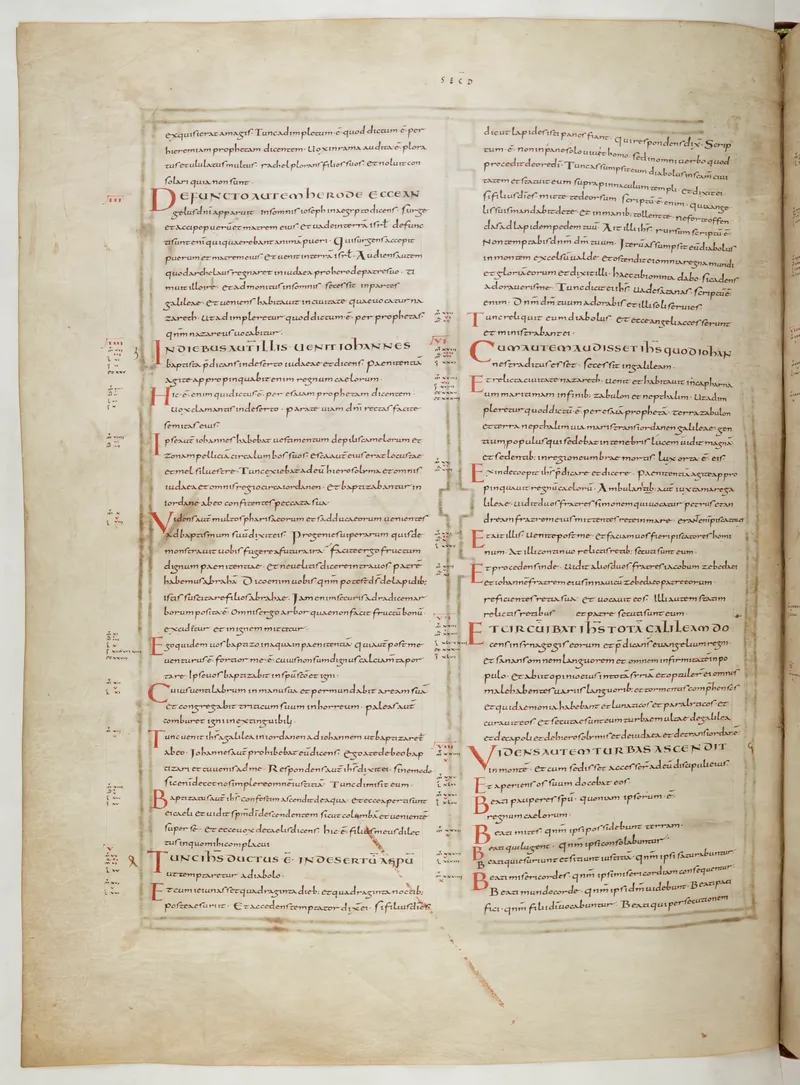 SECD
exquisierat amagis. Tunc adimpletum . ē . quod dictum ē per
hieremiam prophetam dicentem. Uox inrama audita ē plora
tus et ululatus multus . rachel plorans filios suos. Et noluit con
solari quia non sunt
DEFUNCTO AUTEM HERODE ECCE AN
gelus dn̄i apparuit insomnis ioseph inaegypto dicens. surge
et accipe puerum et matrem eius. et uade in terrā isrl̄. defunc
ti sunt eni qui quaerebant animā pueri. Qui surgens accepit
puerum et matrem eius. Et uenit interrā isrl̄. Audiens autem
quod archelaus regnaret in iudaea pro herode patre suo. ti
muit illo ire. et admonitus insomnis. secessit inpartes
galileae. Et ueniens habitauit in ciuitate quae uocatur na
zareth. ut adimpleretur quod dictum ē. per prophetas
qnm nazareus uocabitur.
INDIEBUS AUT ILLIS UENIT IOHANNES
baptista p̄dicans indeserto iudaeae et dicens. paenitentiā
agite appropinquabit enim regnum caelorum.
Hic . ē . enim qui dictus ē. per esaiam prophetam dicentem.
Uox clamantis indeserto. parate uiam dn̄i rectas facite
semitas eius.
Ipse aut iohannes habebat uestimentum de pilis camelorum et
zonam pelliciā circa lumbos suos. Esca aut eius erat locustae
et mel siluestre. Tunc exiebat ad eū hierosolima et omnis
iudaea et omnis regio circa iordanen. et baptizabantur in
iordane ab eo confitentes peccata sua.
Uidens aut multos pharisaeorum et sadducaeorum uenientes
ad baptismum suū dixit eis. Progenies uiperarum quis de
monstrauit uobis fugere a futura ira. facite ergo fructum
dignum paenitentiae. Et ne uelitis dicere intra uos patrē
habemus abrahā. Dico enim uobis qnm potest ds̄ de lapidib;
istis suscitare filios abrahae. Iam enim securis ad radicem ar
borum posita ē. Omnis ergo arbor quae non facit fructū bonū
exciditur et in ignem mittetur.
Ego quidem uos baptizo in aqua in paenitentiā. qui aut post me
uenturus ē fortior me ē. cuius non sum dignus calciamta por
tare. Ipse uos baptizabit in sp̄u sc̄o et igni.
Cuius uentilabrum in manu sua et permundabit aream suā.
et congregabit triticum suum in horreum. paleas aut
comburet igni inextinguibili.
Tunc uenit ih̄s a galilea in iordanen ad iohannem ut baptizaret
ab eo. Iohannes aut prohibebat eū dicens. Ego a te debeo bap
tizari et tu uenis ad me. Respondens aut ih̄s dixit ei. sine modo
sic eni decet nos implere omnē iustitiā. Tunc dimisit eum.
Baptizatus aut ih̄s confestim ascendit de aqua. Et ecce aperti sunt
ei caeli et uidit sp̄m dī descendentem sicut columbā et uenientē
super se. Et ecce uox de caelis dicens. hic ē filius meus dilec
tus in quo mihi complacui
TUNC IH̄S DUCTUS Ē. IN DESERTŪ A SP̄U
ut temptaretur a diabolo.
Et cum ieiunasset quadraginta dieb; et quadraginta noctib;
postea esuriit. Et accedens temptator dixit ei. si filius dī es
dic ut lapides isti panes fiant. qui respondens dix̄. Scrip
tum ē. non in pane solo uiuit homo. sed in omni uerbo quod
procedit de ore dī. Tunc assumpsit eum diabolus in scam ciui
tatem et statuit eum supra pinnaculum templi. et dixit ei
si filius dī es. mitte te deorsum. scriptū ē enim. quia ange
lis suis mandabit de te. et in manib; tollent te. ne forte offen
das ad lapidem pedem tuū. Ait illi ih̄s. rursum scriptū ē.
Non temptabis dn̄m dm̄ tuum. Iterū assumpsit eū diabolus
in montem excelsū ualde. et ostendit ei omnia regna mundi
et gloriā eorum et dixit illi. haec tibi omnia dabo. si cadens
adoraueris me. Tunc dicit ei ih̄s. Uade satanas. scriptū ē
enim. Dn̄m dm̄ tuum adorabis et illi soli seruies.
Tunc reliquit eum diabolus. et ecce angeli accesserunt
et ministrabant ei.
CUM AUTEM AUDISSET IH̄S QUOD IOHAN
nes traditus esset. secessit in galileam.
Et relicta ciuitate nazareth. Uenit et habitauit in capharna
um maritimam in finib; zabulon et nepthalim. Ut adim
pleretur quod dictū ē per esaiā prophetā. terra zabulon
et terra nepthalim uia maris trans iordanen galileae gen
tium populus qui sedebat in tenebris lucem uidit magnā
et sedentib; in regione umbrae mortis lux orta ē eis
Exinde coepit ih̄s p̄dicare et dicere. Paenitentiā agite appro
pinquauit regnū caelorū. Ambulans aut iuxta mare ga
lileae. uidit duos fratres simonem qui uocatur petrus et an
dream fratrem eius mittentes rete in mare. erant eni piscatores
Et ait illis. Uenite post me. et faciam uos fieri piscatores homi
num. At illi continuo relictis retib; secuti sunt eum.
Et procedens inde. Uidit alios duos fratres iacobum zebedaei
et iohannē fratrem eius in naui cū zebedaeo patre eorum
reficientes retia sua. et uocauit eos. Illi autem statim
relictis retibus et patre secuti sunt eum
ET CIRCUIBAT IH̄S TOTĀ GALILEAM DO
cens in synagogis eorum et p̄dicans euangelium regni.
et sanans omnem languorem et omnem infirmitatē in po
pulo. Et abiit opinio eius in totā syriā et optuler ei omnis
male habentes uariis languorib; et tormentis comphensos
et qui daemonia habebant et lunaticos et paralyticos et
curauit eos. Et secutae sunt eum turbae multae de galilea
et decapoli et de hierosolimis et de iudaea et de trans iordanē.
VIDENS AUTEM TURBAS ASCENDIT
in montē. Et cum sedisset accesser ad eū discipuli eius
Et aperiens os suum docebat eos
Beati pauperes sp̄u. quoniam ipsorum . ē .
regnum caelorum.
Beati mites. qnm ipsi possidebunt terram.
Beati qui lugent. qnm ipsi consolabuntur.
Beati qui esuriunt et sitiunt iustitiā. qnm ipsi saturabuntur.
Beati misericordes. qnm ipsi misericordiam consequentur.
Beati mundo corde. qnm ipsi dm̄ uidebunt. Beati paci
fici. qnm filii dī uocabuntur. Beati qui persecutionem